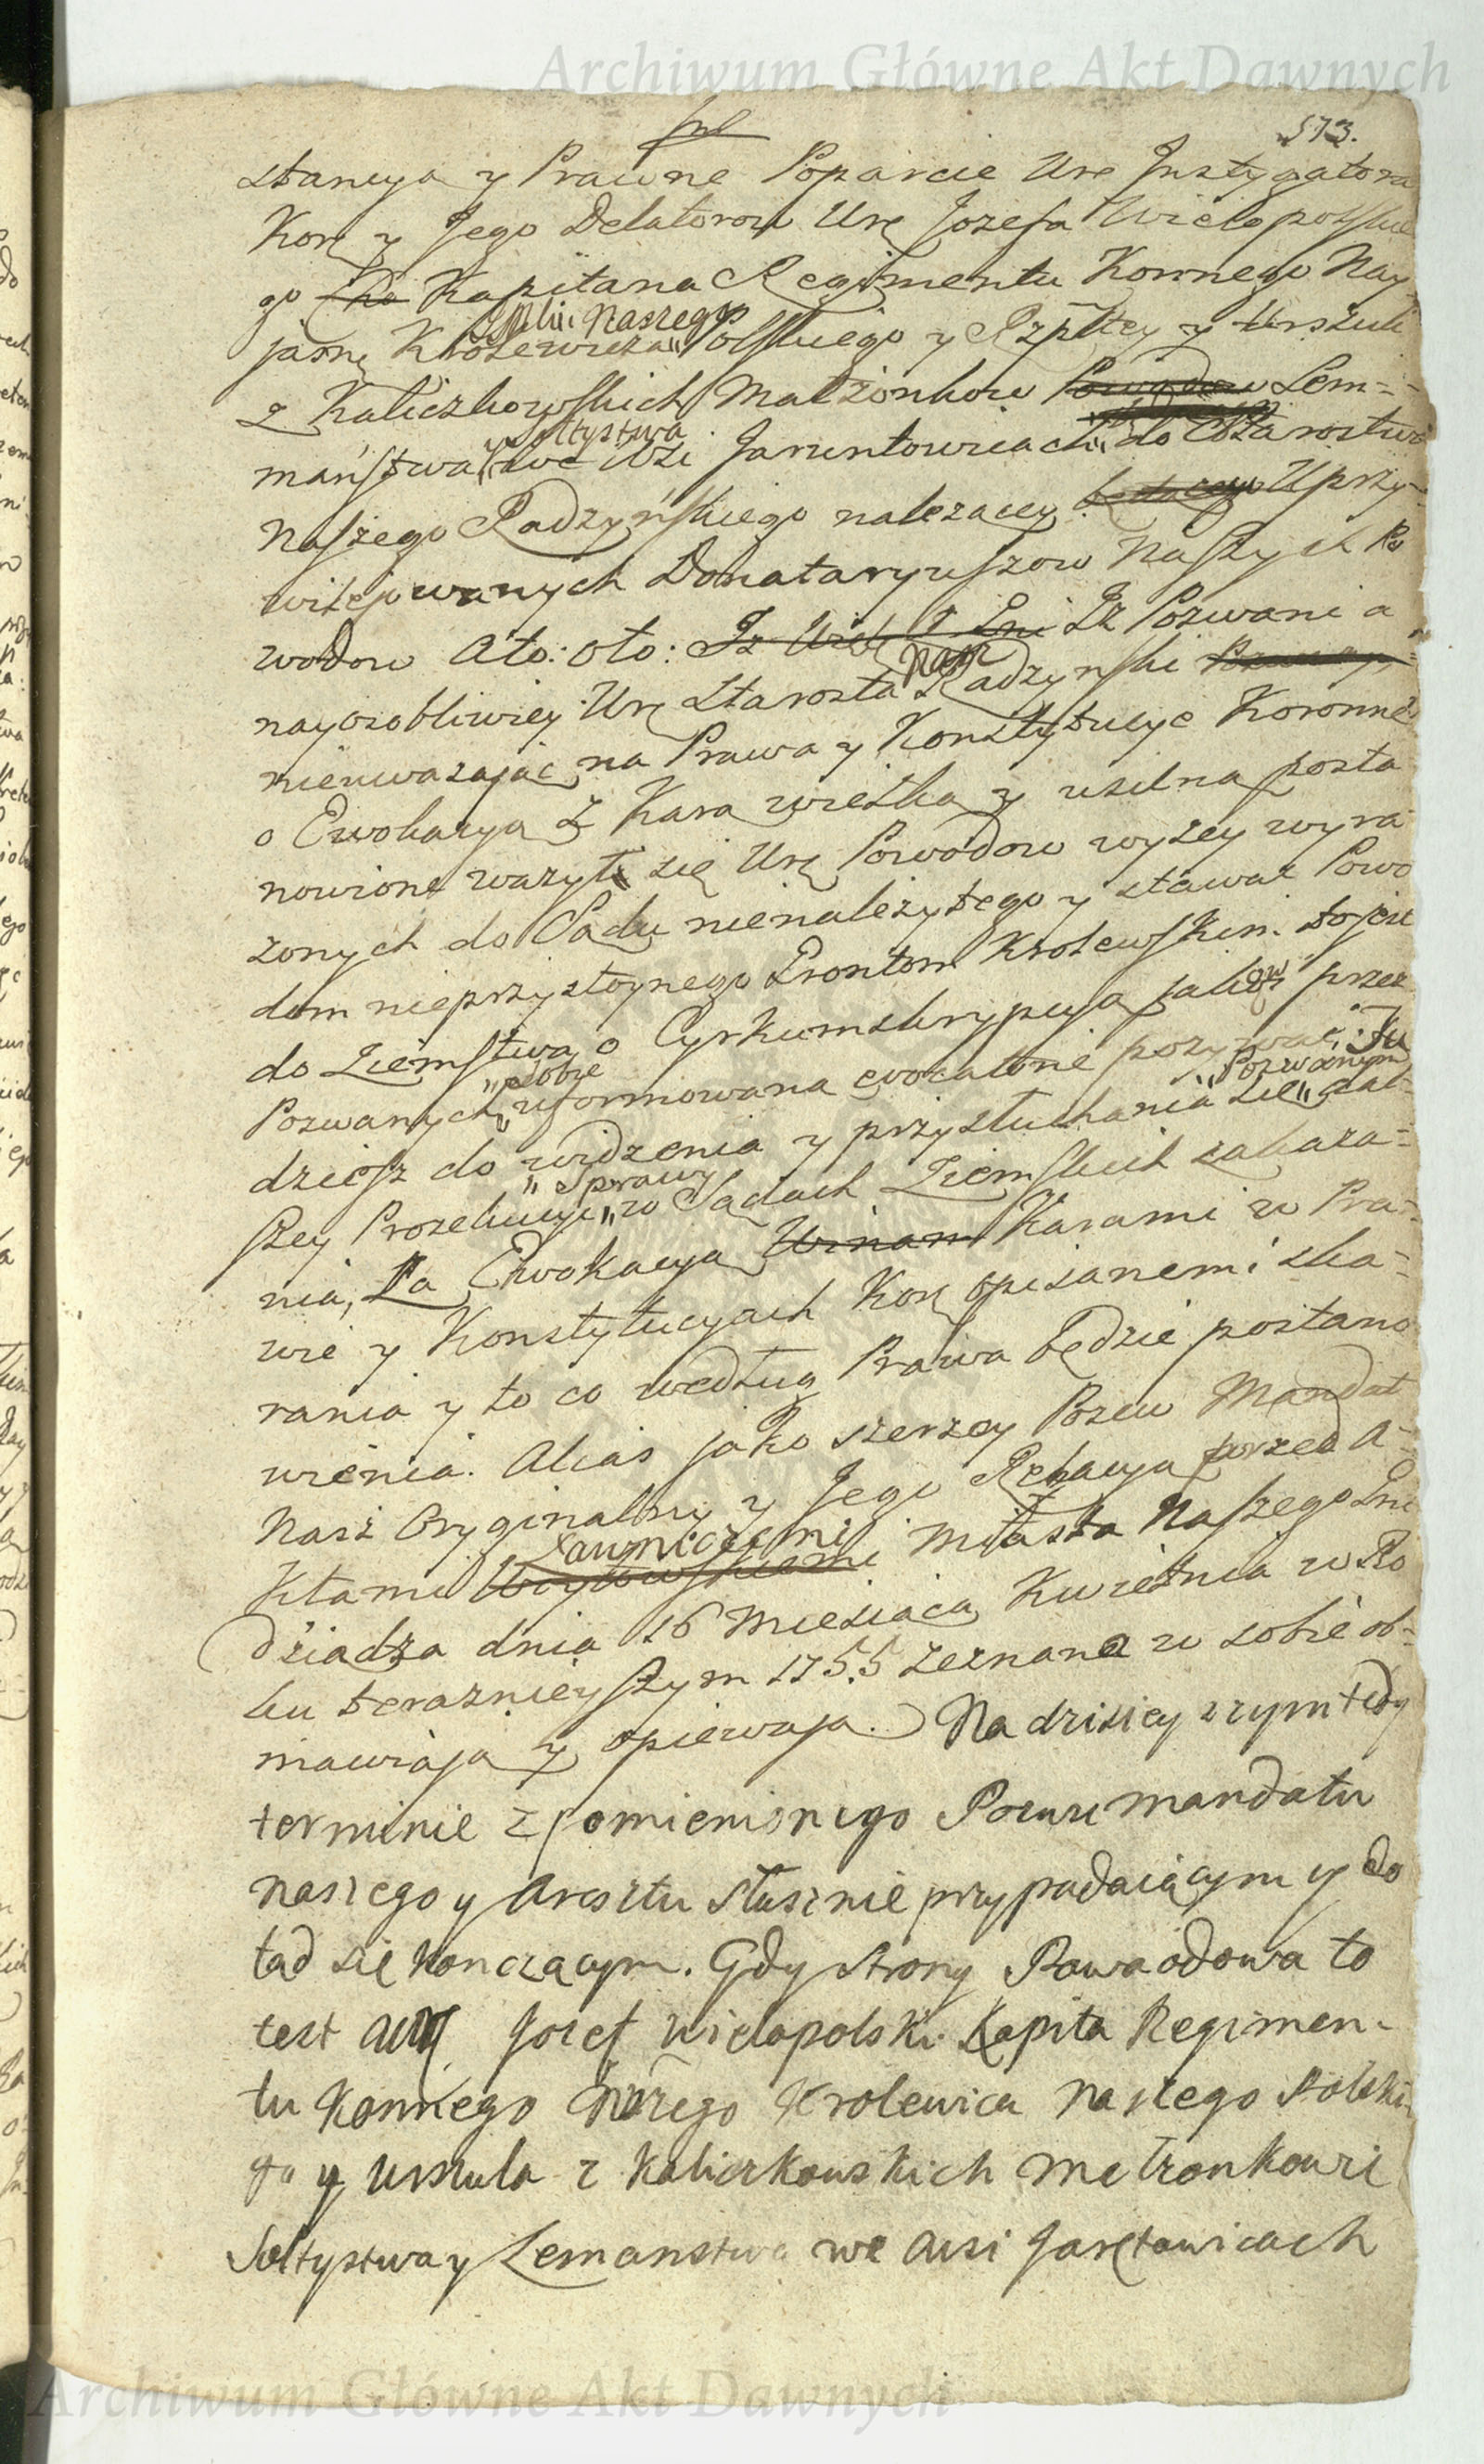 Archiwum Główne Akt Dawnych
573.
stancya y Prawne Poparcie Ure Instygatora
Kore y Jego Delatorow Ure Jozefa Wielopolskie
go Kapitana Regimentu Konnego Nay
Naszego
jasne Krolewicza Polskiego y Rzpltey y Urszuli
z Kaliczkowskich Malżonkow Powodow Lem=
y Sołtystwa
maństwa we Wsi Jaruntowicach do Starostwa
Naszego Radzyńskiego należacey Uprzy=
wilejowanych Donataryuszow Naszych Po
wodow Ato: Oto: Iż Pozwani a
Nasz
nayosobliwiey Ure Starosta Radzynski
nieuważając na Prawa y Konstytucye Koronne
o Ewokacya z Kara wieżka y usilna posta
nowione ważył się Ure Powodow wyżey wyra
żonych do Sadu nienależytego y stawać Powo
dom nieprzystoynego Frontem Krolewskim to jest
do Ziemstwa o Cyrkumskrypcya jakaś przez
sobie
Pozwanych uformowana evocatorie pozywać. Ju
Pozwanym
dziesz do widzenia y przysłuchania sie dal=
Sprawy
szey Prozekucyi w Sądach Ziemskich zakaza=
nia, Za Ewokacya Winam Karami w Pra=
wie y Konstytucyach Kore opisanemi ska=
rania y to co według Prawa będzie postano
wienia. Alias jako szerzey Pozew Mandat
Nasz Oryginalny y Jego Relacya przed A=
Ławniczemi
ktami Woytowskiemi Miasta Naszego Gru
dziadza dnia 16 Miesiaca Kwietnia w Ro
ku teraznieyszym 1755 zeznana w sobie ob=
mawiaja y opiewaja. Na dzisieyszym tedy
terminie z pomienionego Pozwu mandatu
naszego y aresztu słusznie przypadaiącym y do
tad się konczacym. Gdy strony Powaodowa to
test Jozef Wielopolski Kapita Regimen-
tu Konnego Krolewica naszego Polskie
go y Urszula z Kaliczkowskich Małzonkowie
Sołtystwa y Lemanstwa we wsi Jaretowicach
Archiwum Główne Akt Dawnych